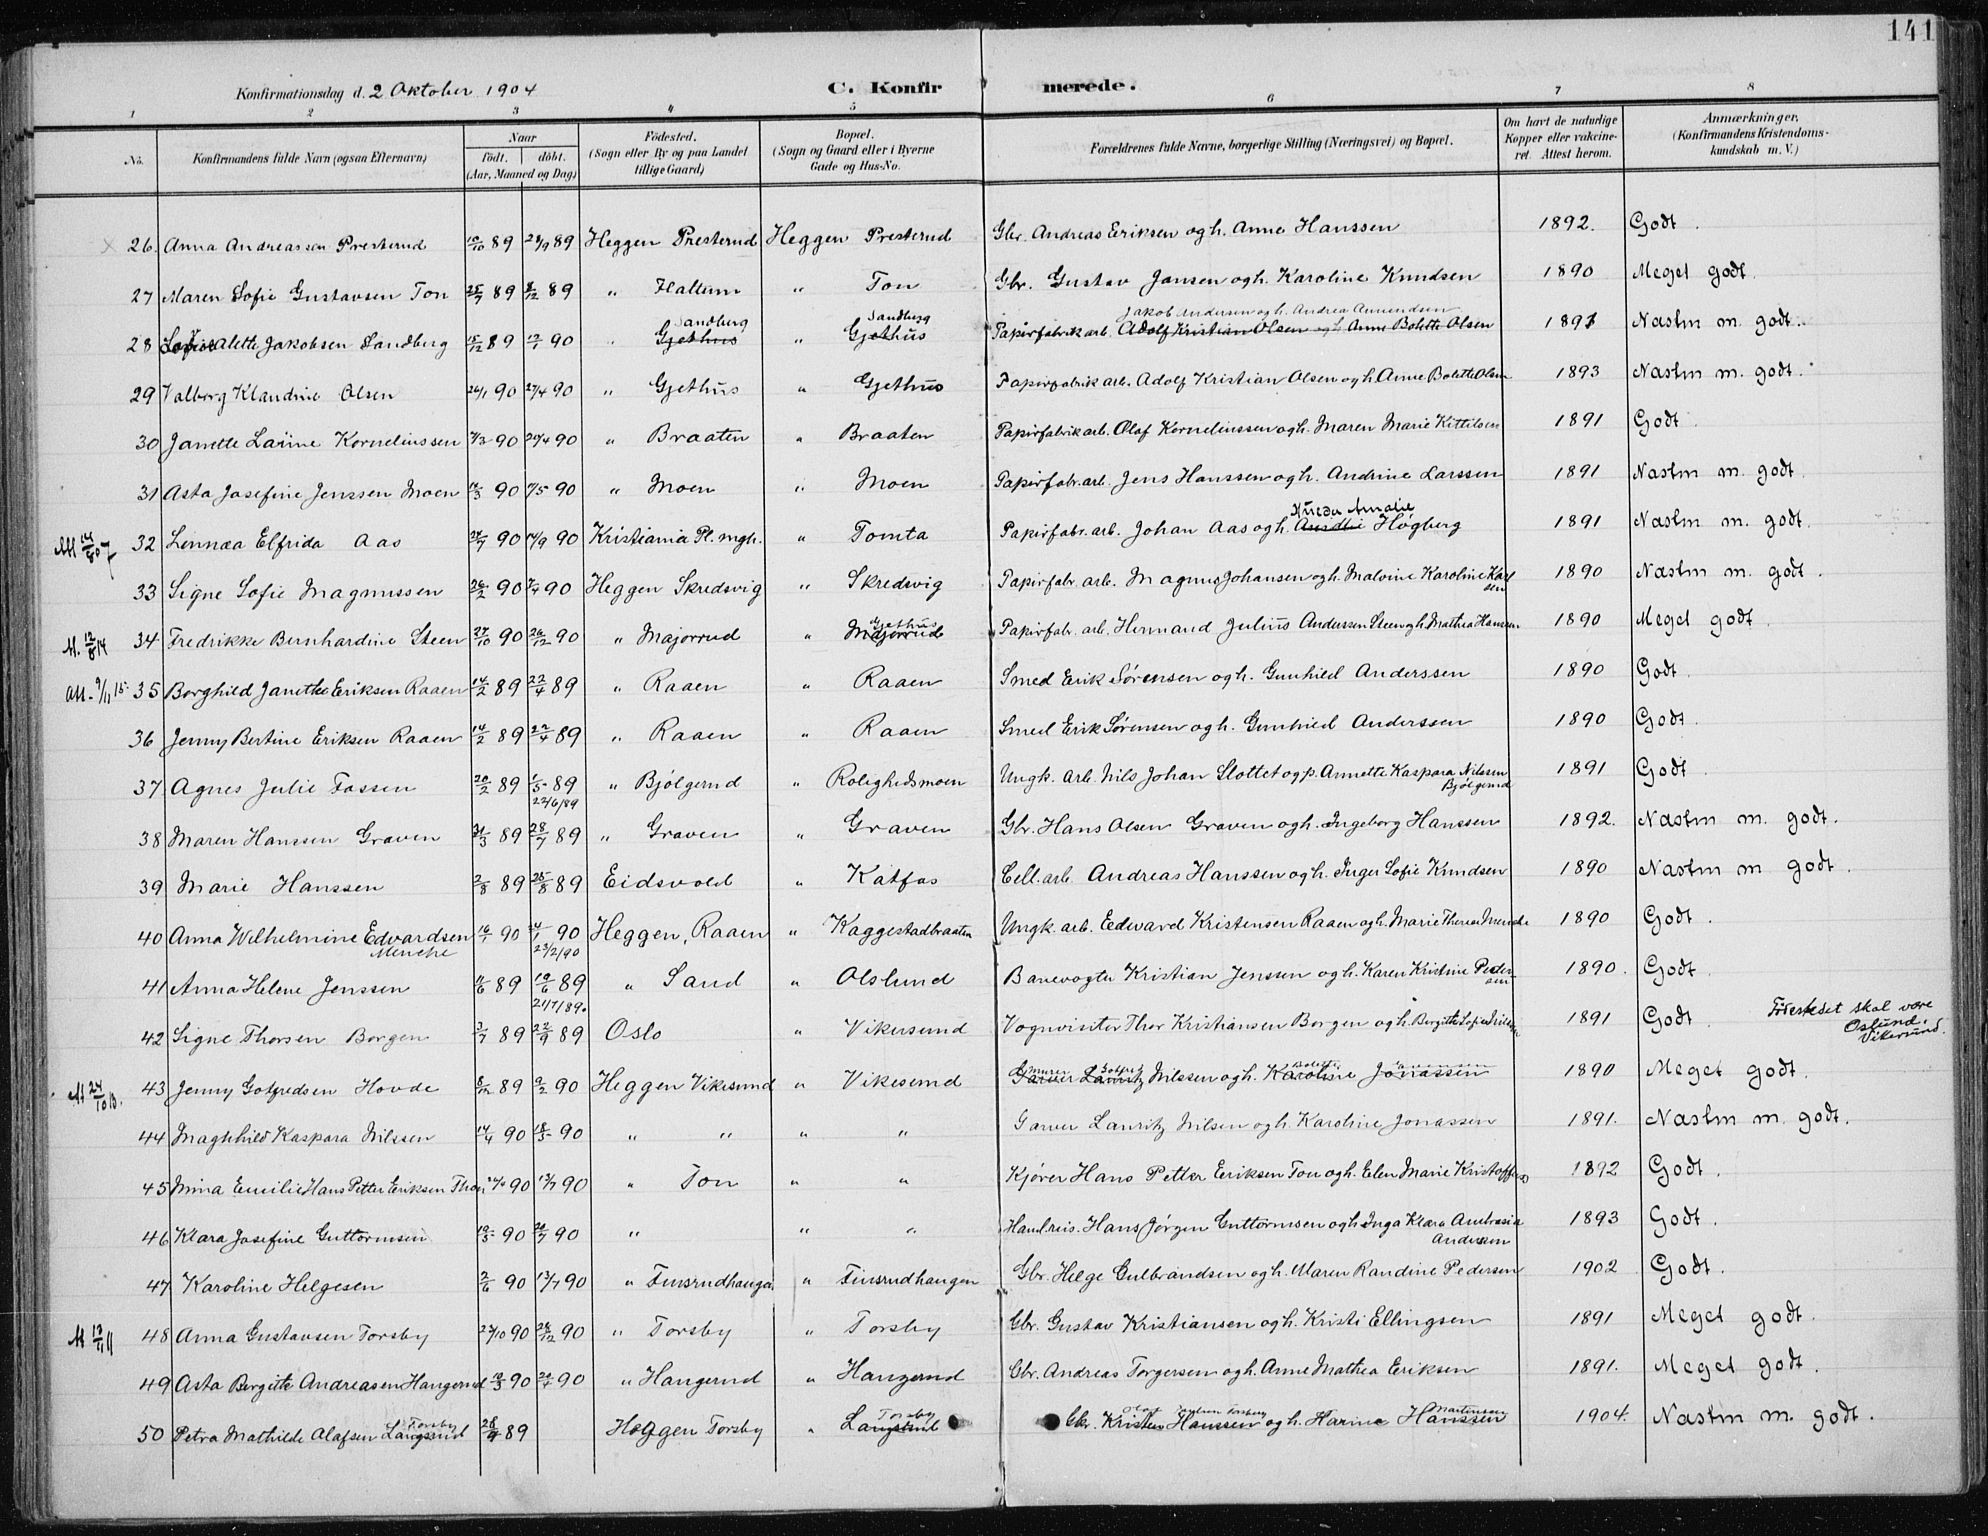 141
Konfirmationsdag d. 2 Oktober 1904 C. Konfirmerede.
1 2 3 4 5 6 7 8
No. Konfirmandens fulde Navn (ogsaa Efternavn) Naar født. døbt. (Aar, Maaned og Dag) Fødested. (Sogn eller By og paa Landet tillige Gaard) Bopæl. (Sogn og Gaard eller i Byerne Gade og Hus-No. Forældrenes fulde Navne, borgerlige Stilling (Næringsvei) og Bopæl. Om havt de naturlige Kopper eller vakcineret. Attest herom. Anmærkninger, (Konfirmandens Kristendomskundskab m. V.)
26. Anna Andreassen Presterud 89 89 Heggen Presterud Heggen Presterud Gbr. Andreas Eriksen og h. Anne Hanssen 1892. Godt.
27 Maren Sofie Gustavsen Ton 89 8/12 89 " Haltum " Ton Gbr. Gustav Jansen og h. Karoline Knudsen 1890 Meget godt.
Sandberg Sandberg Jakob Andersen og h. Andrea Amundsen
28 Alette Jakobsen Sandberg 15/12 89 12/1 90 " Gjethus " Gjethus Papirfabrik arb. Adolf Kristian Olsen og h. Anne Bolette Olsen 1891 Nastm m. godt.
29 Valborg Klaudine Olsen 26/1 90 27/4 90 " Gjethus " Gjethus Papirfabrik arb. Adolf Kristian Olsen og h. Anne Bolette Olsen 1893 Nastm m. godt.
30 Janette Laüine Kornelinssen 7/3 90 27/4 90 " Braaten " Braaten Papirfabrik arb. Olaf Kornelinssen og h. Maren Marie Kittilsen 1891 Godt.
31 Asta Josefine Jenssen Moen 90 90 " Moen " Moen Papirfabr. arb. Jens Hanssen og h. Andrine Larssen 1891 Nastm m. godt.
Amalie
32 Lennæa Elfrida Aas 90 14/9 90 Kristiania Pl. mgh. " Tomta Papirfabr. arb. Johan Aas og h. Høgberg 1891 Nastm m. godt.
33 Signe Sofie Magnussen 26/2 90 7/4 90 Heggen Skredsvig " Skredsvig Papirfabr. arb. Magnus Johansen og h. Malvine Karoline Karlsen 1890 Nastm m. godt.
Gjethus
M. 12/8 14 34 Fredrikke Bernhardine Steen 27/10 90 26/12 90 " Majorrud " Majorrud Papirfabr. arb. Hermand Julius Andersen Steen og h. Mathea Hansen 1890 Meget godt.
Att. 9/11 15. 35 Borghild Janette Eriksen Raaen 14/2 89 22/4 89 " Raaen " Raaen Smed Erik Sørensen og h. Gunhild Anderssen 1890 Godt.
36 Jenny Bertine Eriksen Raaen 14/2 89 22/4 89 " Raaen " Raaen Smed Erik Sørensen og h. Gunhild Anderssen 1890 Godt.
37 Agnes Julie Fossen 20/2 89 1/5 89 " Bjølgerud " Rolighedsmoen Ungk. arb. Nils Johan Slottet og p. Annette Kaspara Nilssen Bjølgerud 1891 Godt
22/6/89
38 Maren Hanssen Graven 89 28/7 89 " Graven " Graven Gbr. Hans Olsen Graven og h. Ingeborg Hanssen 1892. Nastm m. godt.
39 Marie Hanssen 2/8 89 25/8 89 Eidsvold " Katfos Cell. arb. Andreas Hanssen og h. Inger Sofie Knudsen 1890 Nastm m godt.
40 Anna Wilhelmine Edvardsen 16/1 90 90 Heggen, Raaen " Kaggestadbraaten Ungk. arb. Eedward Kristensen Raaen og h. Marie Therese Menche 1890 Godt.
Menche 23/2/90
41 Anna Helene Jenssen 89 10/6 89 " Sand " Olslund Banevogter Kristian Jenssen og h. Karen Kristine Pedersen 1890. Godt.
21/7/89.
42 Signe Thorsen Borgen 3/7 89 22/9 89 Oslo " Vikersund Vognvisiter Thor Kristiansen Borgen og h. Birgitte Sofie Nilsen 1891 Godt. skal være Oslund, Vikersund.
Murer Gotfred Bolette
M 24/10 13. 43 Jenny Gotfredsen Hovde 8/12 89 9/2 90 Heggen Vikesund " Vikesund Garver Lauritz Nilssen og h. Karoline Jonassen 1890 Meget godt.
44 Maghhild Kaspara Nilssen 14/4 90 18/5 90 " " " " Garver Lauritz Nilsen og h. Karoline Jonassen 1891. Nastm m. godt.
45 Mina Emilie Hans Petter Eriksen Thon 90 13/7 90 " Ton " " Kjører Hans Petter Eriksen Ton og h. Elen Marie Kristoffersen 1892 Godt.
46 Klara Josefine Guttormsen 90 20/7 90 " " " Handreis. Hans Jørgen Guttormsen og h. Inga Klara Ambrosia Andersen 1893 Godt.
47 Karoline Helgesen 2/6 90 13/7 90 " Finsrudhaugen " Finsrudhaugen Gbr. Helge Gulbrandsen og h. Maren Randine Pedersen 1902 Godt.
48 Anna Gustavsen Torsby 23/10 90 26/12 90 " Torsby " Torsby Gbr. Gustav Kristiansen og h. Kristi Ellingsen 1891 Meget godt.
49 Asta Bergitte Andreasen Haugerud 90 90 " Haugerud " Haugerud Gbr. Andreas Torgersen og h. Anne Mathea Eriksen 1891. Meget godt.
Torsby Torsby Olaf Torsby Martinsen
50 Petra Mathilde Olafsen Langsrud 89 Heggen Torsby " Langsrud Gbr. Kristen Hanssen og h. Karine Hanssen 1904. Nastm m. godt.